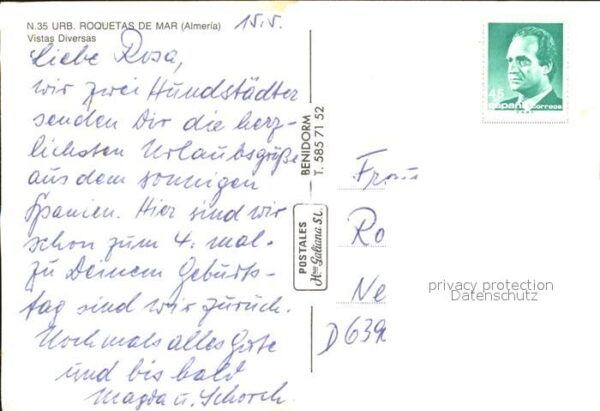 N.35 URB. ROQUETAS DE MAR (Almería)
Vistas Diversas
15.5.
Liebe Rosa,
wir zwei Hundstädter
senden Dir die herz-
lichsten Urlaubsgrüße
aus dem sonnigen
Spanien. Hier sind wir
schon zum 4. mal.
zu Deinem Geburts-
tag sind wir zurück.
Nochmals alles Gute
und bis bald
Magda u. Schorch.
BENIDORM
T. 585 71 52
POSTALES
Hnos Galiana S.L.
45
españa correos
Frau
Ro
Ne
D639
privacy protection
Datenschutz